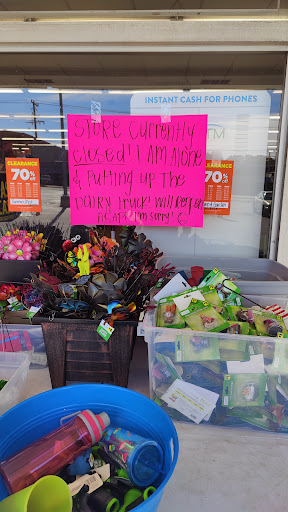 INSTANT CASH FOR PHONES
Store Currently
closed! I Am Alone
& Putting up The
Dairy truck! Will Reopen
I'm Sorry!
CLEARANCE
70%
CLEARANCE
70%